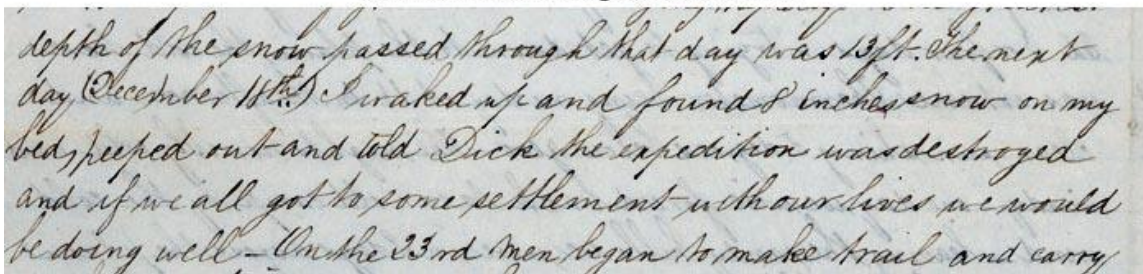 depth of the snow passed through that day was 13 ft. The next
day (December 18th) I waked up and found 8 inches snow on my
bed, peeped out and told Dick the expedition was destroyed
and if we all got to some settlement with our lives we would
be doing well – On the 23rd men began to make trail and carry